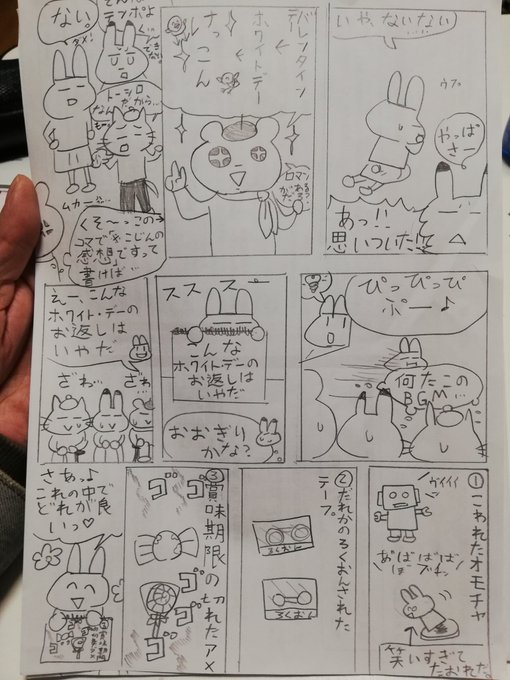 いや、ないない
ウプ
やっぱ
さー
あっ!!
思いついた!!
バレンタイン
デー
←
ホワイトデー
←
けっ
こん
ロマン
ない
ダメ!
テンポよ
トーシロ
だから…
なん
ムカー
くそ〜っこの→
コマで「※こじんの
感想」ですって
書けば…
ぴっぴっぴ
ぷー♪
何だこの
BGM…
スススー
こんな
ホワイトデーの
お返しは
いやだ
おおぎり
かな?
えー、こんな
ホワイト・デーの
お返しは
いやだ
ざわ…
ざわ…
①こわれたオモチャ
ガイイイ
あばばばば
ブチッ
笑いすぎて
たおれた。
②だれかのろくおんされた
テープ
ろくおん
ろくおん
③賞味期限の切れたアメ
ゴゴ
ゴゴゴ
さあっ♪
これの中で
どれが良
いっ♡